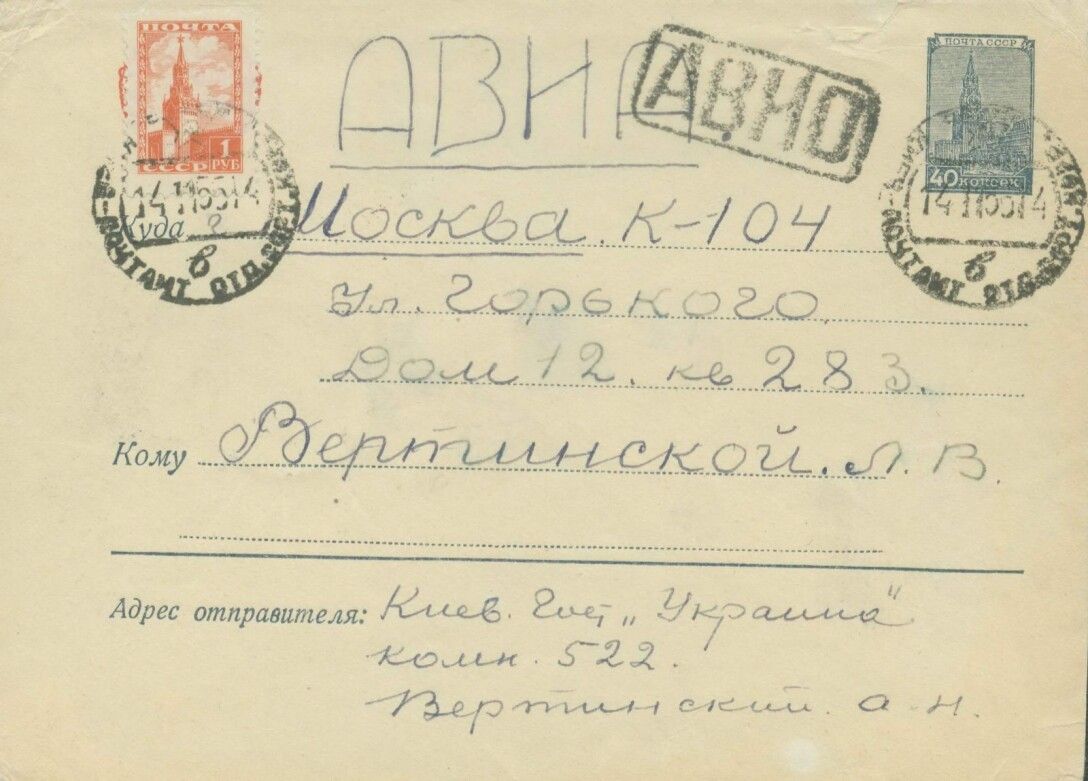 ПОЧТА
1 РУБ
СССР
АВИА
АВИО
ПОЧТА СССР
40 КОПЕЕК
14 11 55 14
в
ПОЧТАМТ ОТД.
14 11 55 14
в
ПОЧТАМТ ОТД.
Куда Москва. К-104
ул. Горького
Дом 12. кв 283.
Кому Вертинской. Л. В.
Адрес отправителя: Киев. Гост „Украина"
комн. 522.
Вертинский. А. Н.